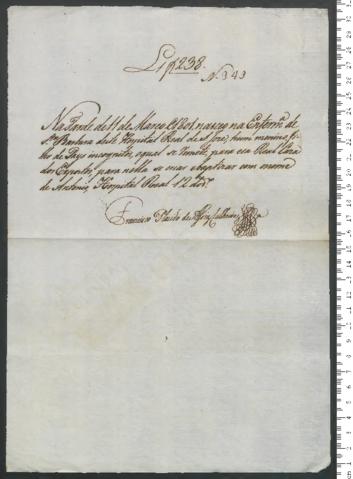 L 1 f 238
N. 343
Na tarde de 11 de Março de 1801, nasceo na Enferm.ª de
S.ta Barbara deste Hospital Real de S. José, hum menino, fi-
lho de Pays incognitos, o qual se remete, para essa Real Caza
dos Expostos, para nella se mar baptizar com o nome
de Antonio, Hospital Real 12 dos.
Francisco